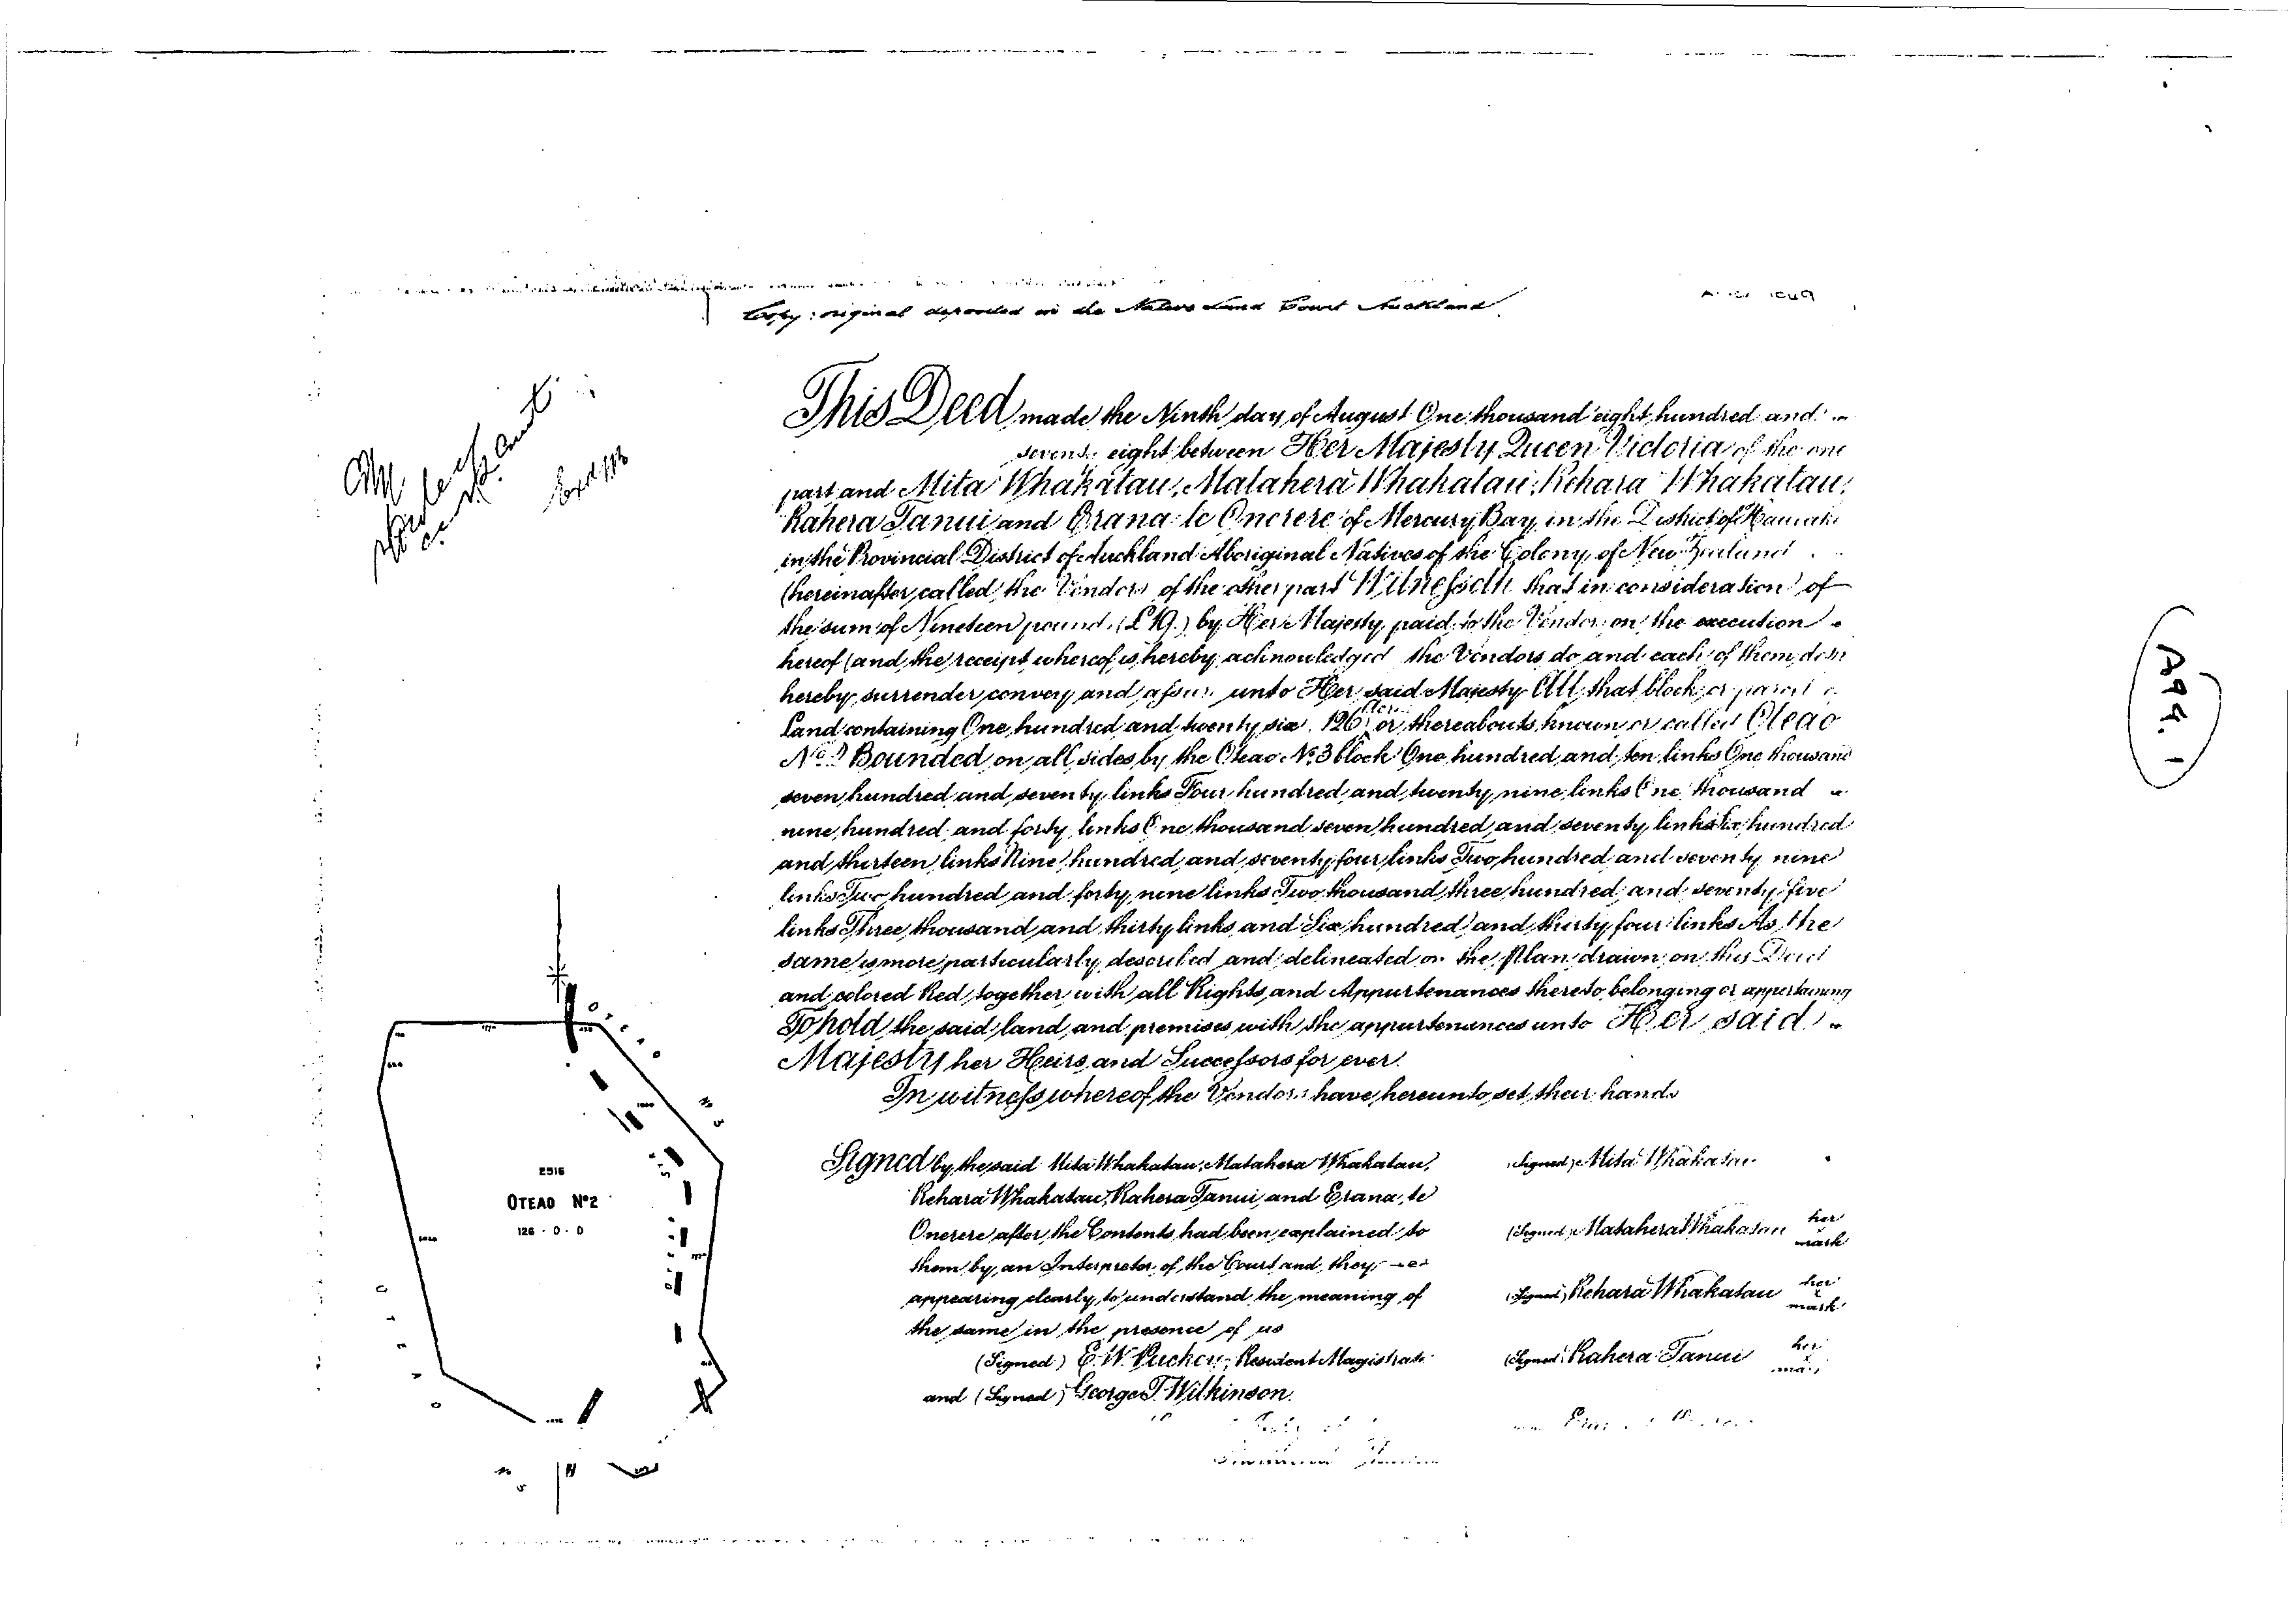 Copy: original deposited in the Native Land Court Auckland
This Deed made the Ninth day of August One thousand eight hundred and
seventy eight between Her Majesty Queen Victoria of the one
part and Mita Whakatau, Matahera Whakatau, Rehara Whakatau,
Rahera Tanui and Erana te Onerere of Mercury Bay in the District of Hauraki
in the Provincial District of Auckland Aboriginal Natives of the Colony of New Zealand
(hereinafter called the Vendors of the other part Witnesseth that in consideration of
the sum of Nineteen pounds (£19.) by Her Majesty paid to the Vendors on the execution
hereof (and the receipt whereof is hereby acknowledged the Vendors do and each of them doth
hereby surrender convey and assure unto Her said Majesty All that block or parcel of
Land containing One hundred and twenty six 126 Acres or thereabouts known or called Oteao
No. 2 Bounded on all sides by the Oteao No. 3 block One hundred and ten links One thousand
seven hundred and seventy links Four hundred and twenty nine links One thousand
nine hundred and forty links One thousand seven hundred and seventy links Six hundred
and thirteen links Nine hundred and seventy four links Two hundred and seventy nine
links Two hundred and forty nine links Two thousand three hundred and seventy five
links Three thousand and thirty links and Six hundred and thirty four links As the
same is more particularly described and delineated on the Plan drawn on this Deed
and colored Red together with all Rights and Appurtenances thereto belonging or appertaining
To hold the said land and premises with the appurtenances unto Her said
Majesty her Heirs and Successors for ever.
In witness whereof the Vendors have hereunto set their hands
Signed by the said Mita Whakatau, Matahera Whakatau,
Rehara Whakatau, Rahera Tanui and Erana te
Onerere after the Contents had been explained to
them by an Interpreter of the Court and they
appearing clearly to understand the meaning of
the same in the presence of us
(Signed) E. W. Puckey, Resident Magistrate
and (Signed) George T. Wilkinson.
(Signed) Mita Whakatau
(Signed) Matahera Whakatau her x mark
(Signed) Rehara Whakatau her x mark
(Signed) Rahera Tanui her x mark
2516
OTEAO Nº2
126 - 0 - 0
APP. 1